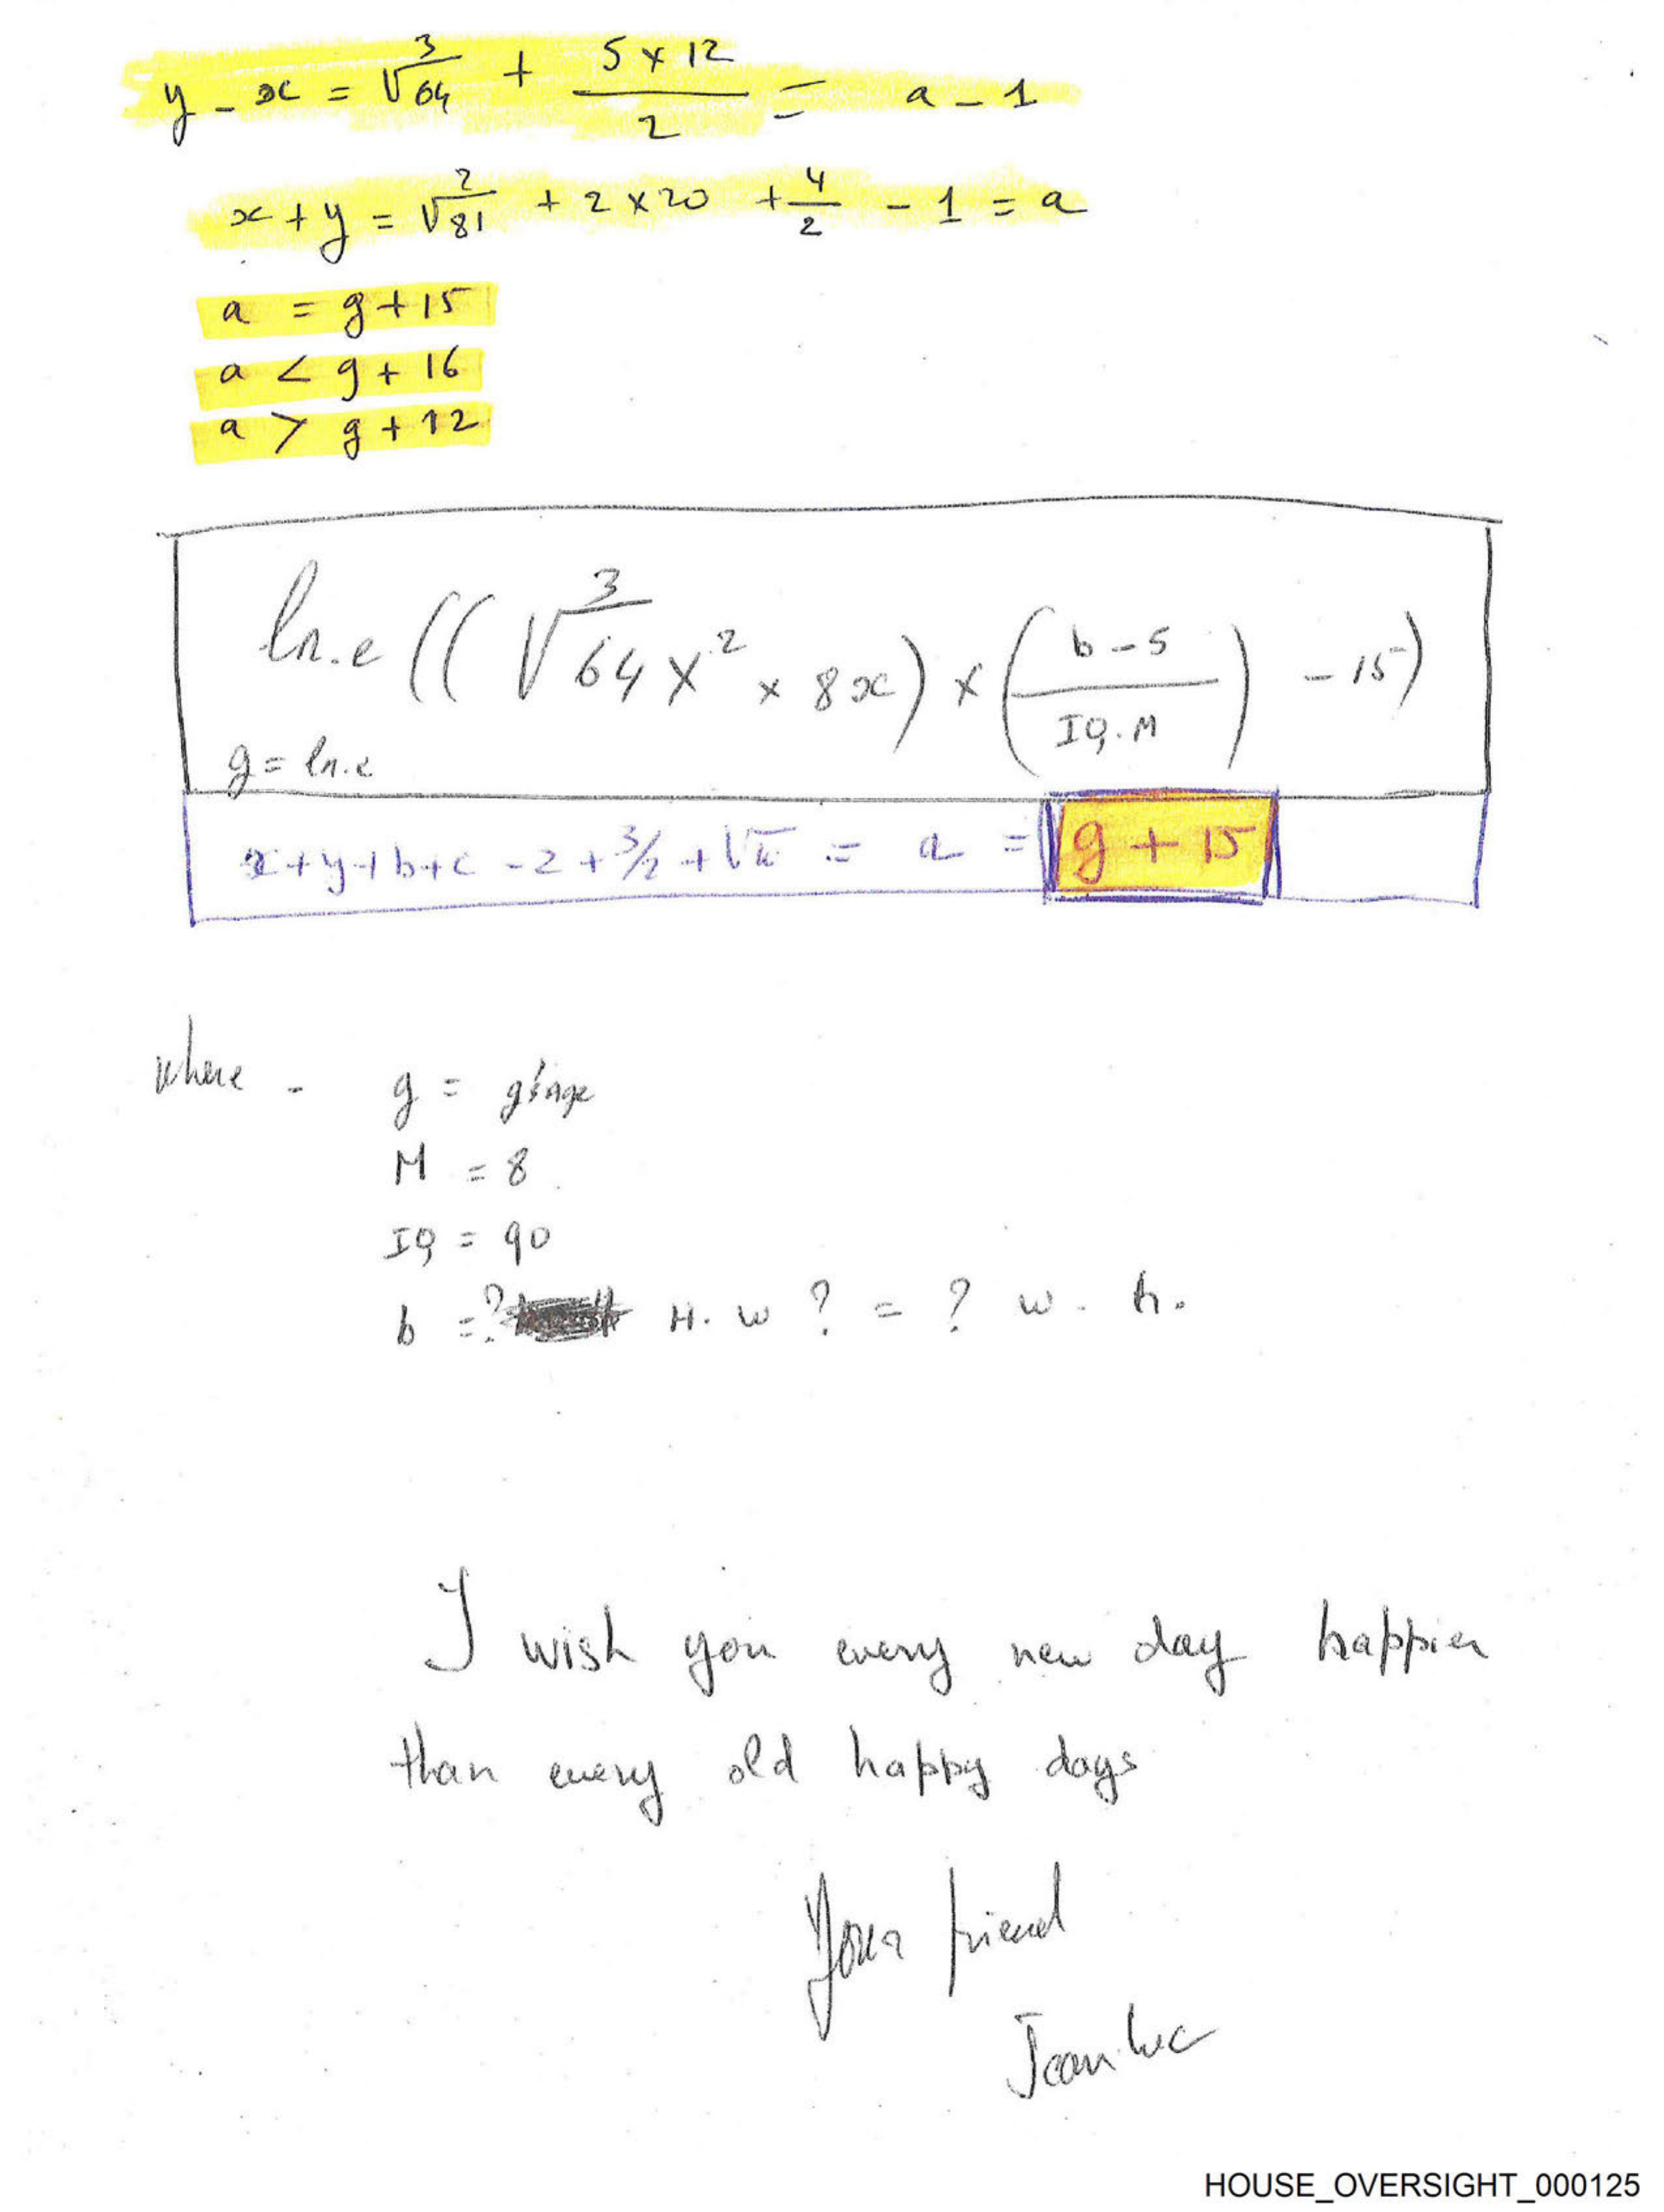 y - x = ∛64 + (5 x 12)/2 = a - 1
x + y = ²√81 + 2 x 20 + 4/2 - 1 = a
a = g + 15
a < g + 16
a > g + 12
ln.e ((∛64x² x 8x) x ((b - 5)/(IQ.M)) - 15)
g = ln.e
x + y + b + c - 2 + 3/2 + √ = a = g + 15
where - g =
M = 8
IQ = 90
b = ? H. w ? = ? w. h.
I wish you every new day happier
than every old happy days
Your friend
Jean Luc
HOUSE_OVERSIGHT_000125